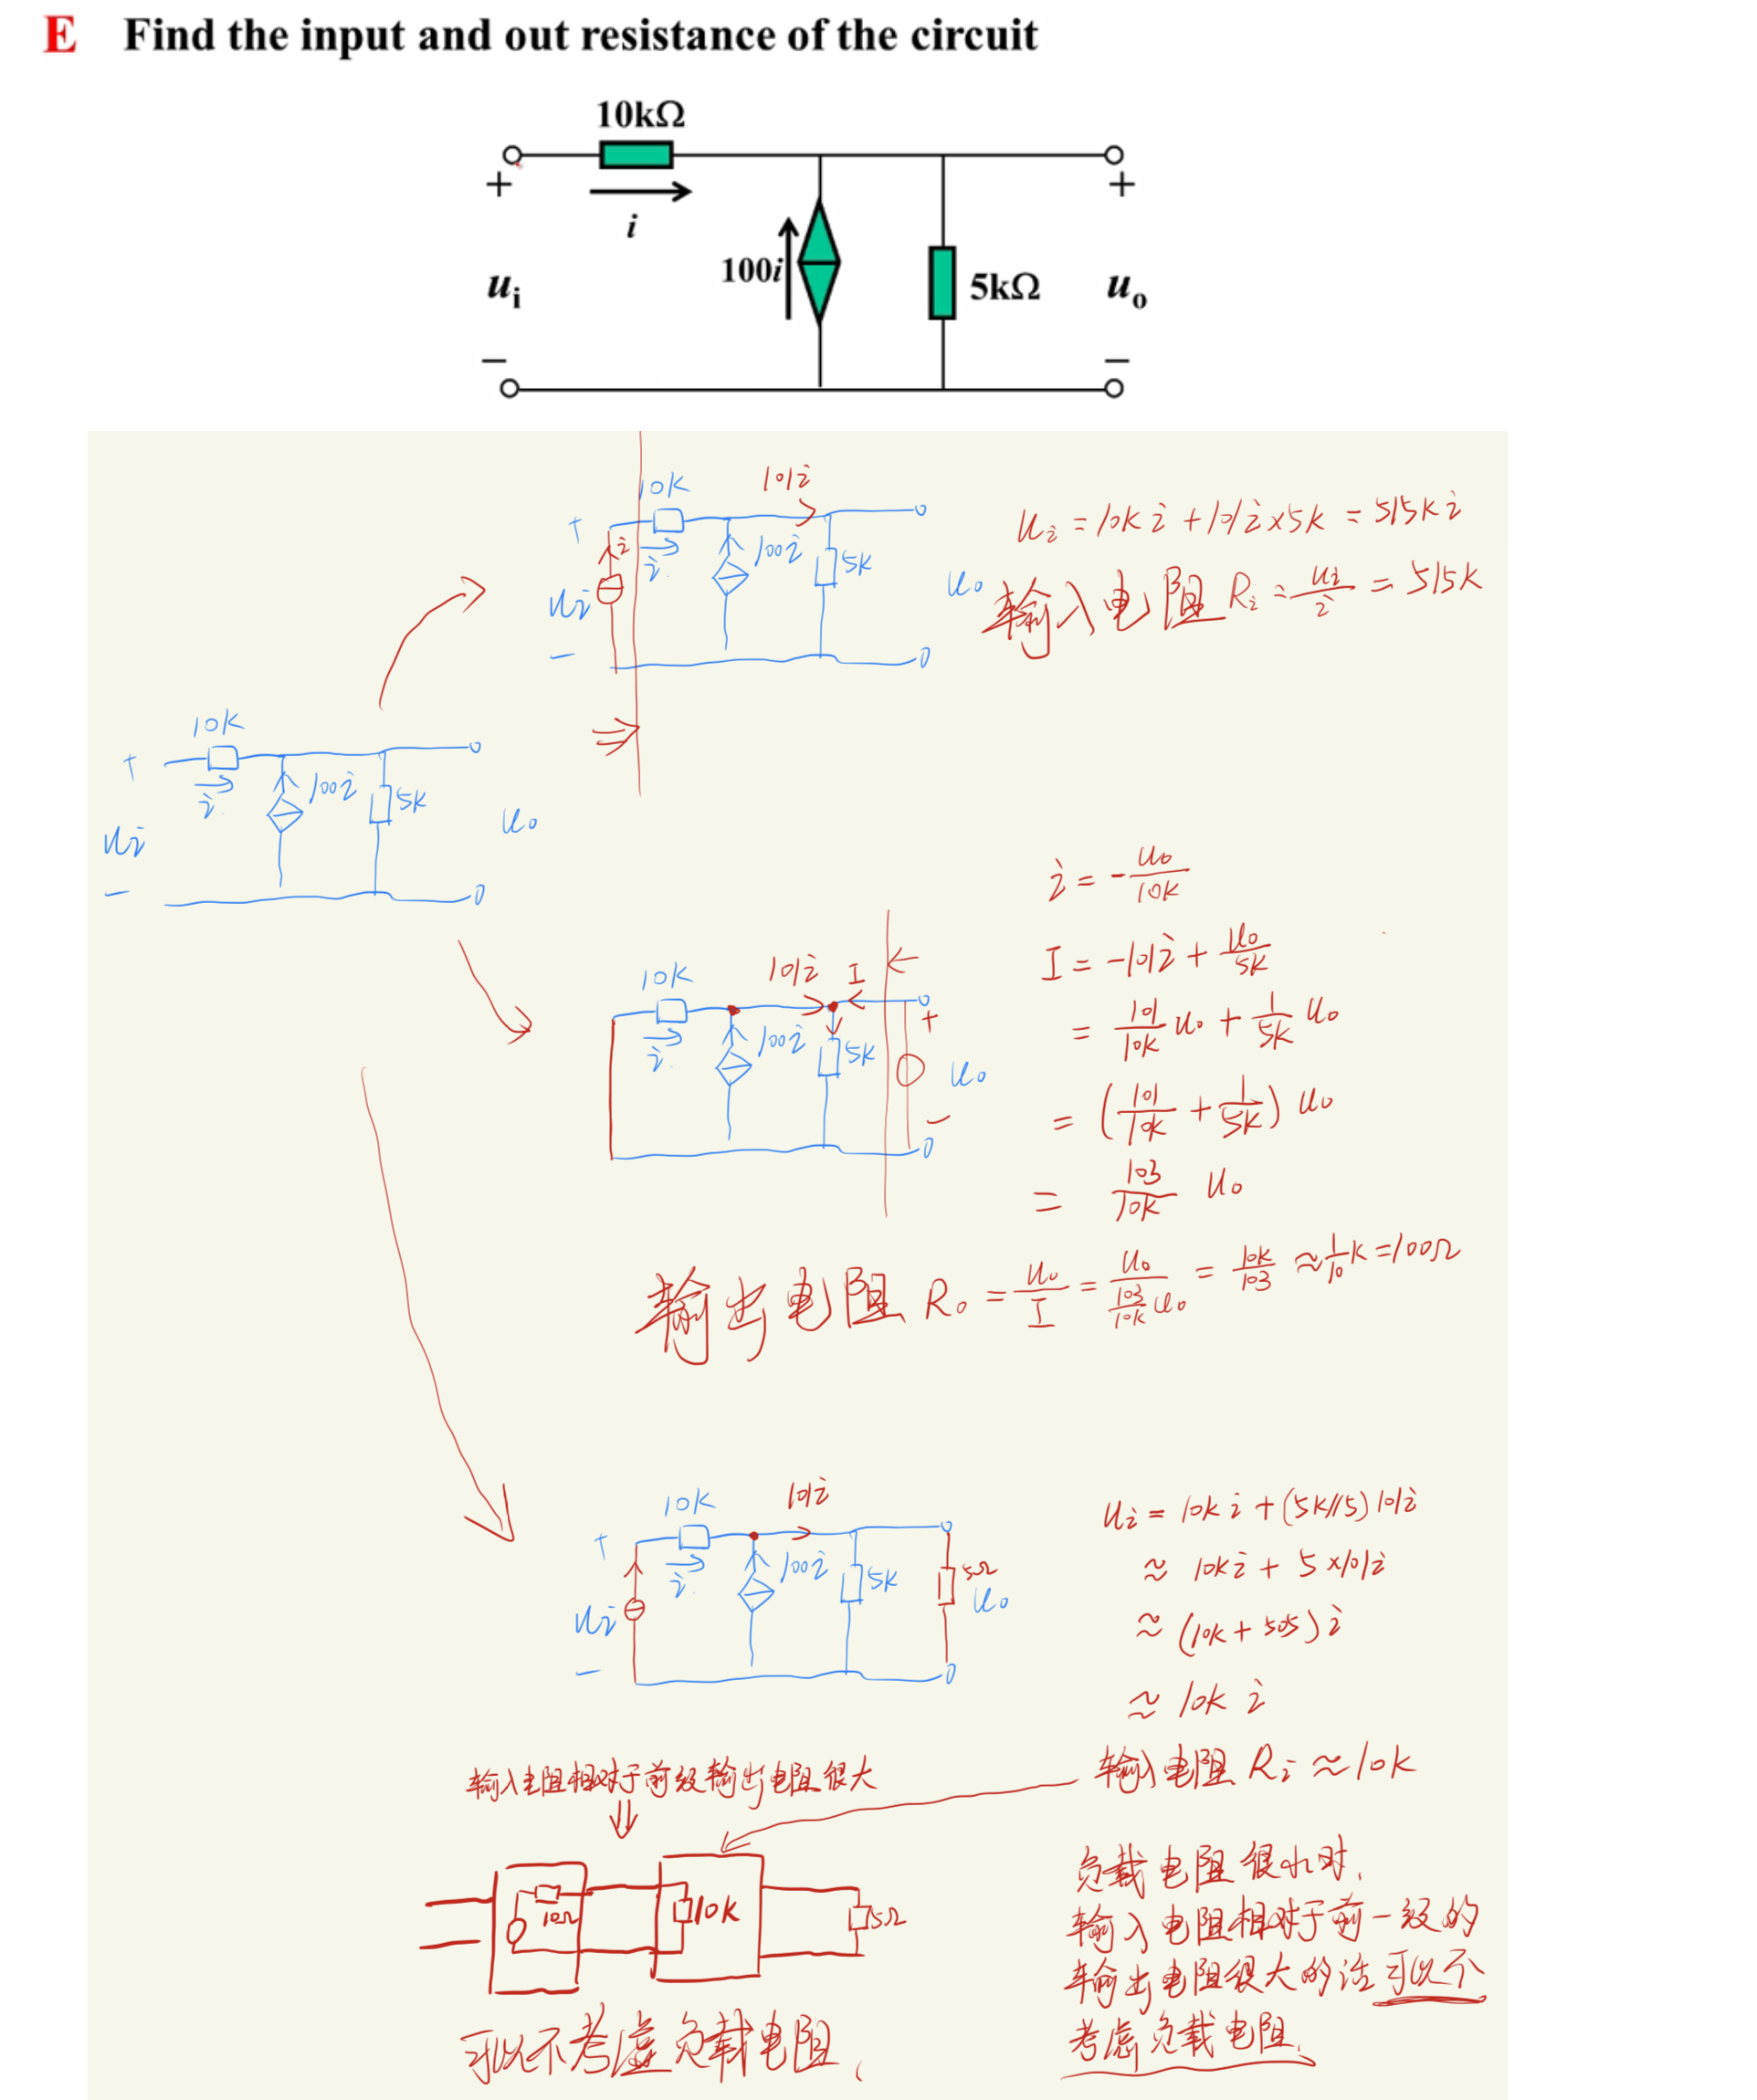 E Find the input and out resistance of the circuit
10kΩ
+
i
100i
5kΩ
+
ui
uo
−
−
10K
101i
+
i
i
100i
5K
ui
uo
−
ui = 10K i + 101i × 5K = 515K i
输入电阻 Ri = ui/i = 515K
10K
+
i
100i
5K
ui
uo
−
10K
101i
I
i
100i
5K
+
uo
−
i = - uo/10K
I = -101i + uo/5K
= 101/10K uo + 1/5K uo
= (101/10K + 1/5K) uo
= 103/10K uo
输出电阻 Ro = uo/I = uo/(103/10K uo) = 10K/103 ≈ 1/10 K = 100Ω
10K
101i
+
i
100i
5K
5Ω
ui
uo
−
ui = 10K i + (5K//5) 101i
≈ 10K i + 5 × 101i
≈ (10K + 505) i
≈ 10K i
输入电阻 Ri ≈ 10K
输入电阻相对于前级输出电阻很大
⇓
10Ω
10K
5Ω
可以不考虑负载电阻.
负载电阻很小时,
输入电阻相对于前一级的
输出电阻很大的话可以不
考虑负载电阻.